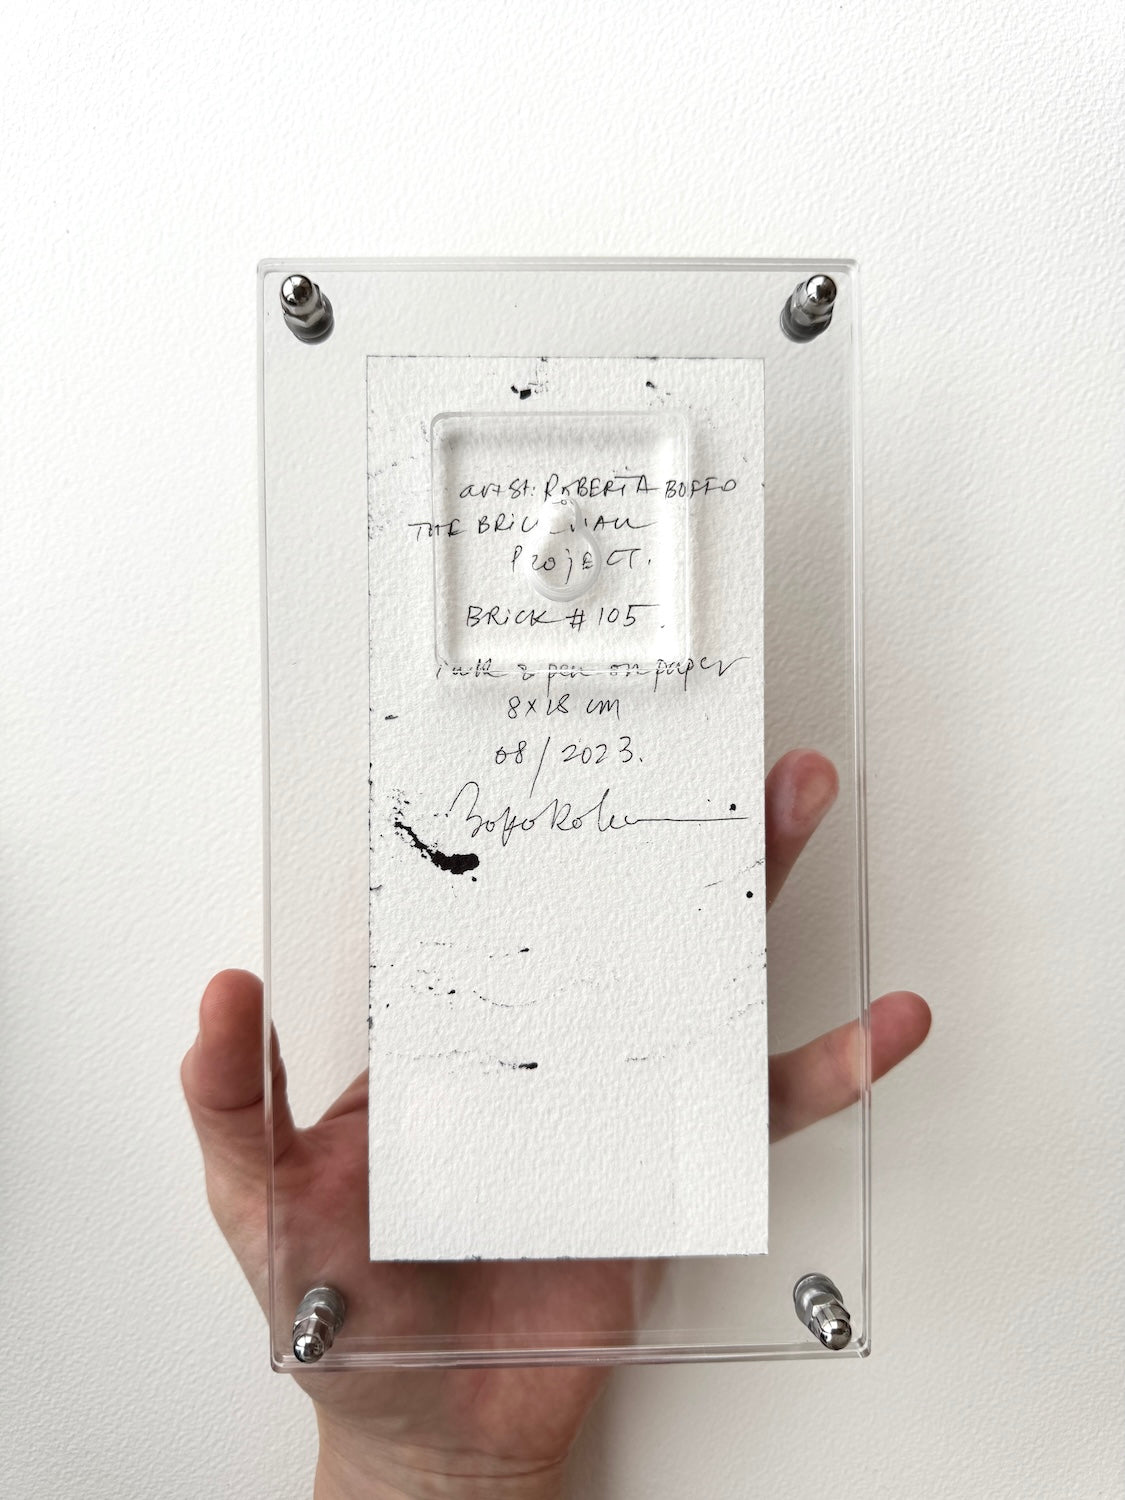 artist: ROBERTA BOFFO
THE BRICK WALL
PROJECT.
BRICK # 105.
ink & pen on paper
8x18 cm
08/2023.